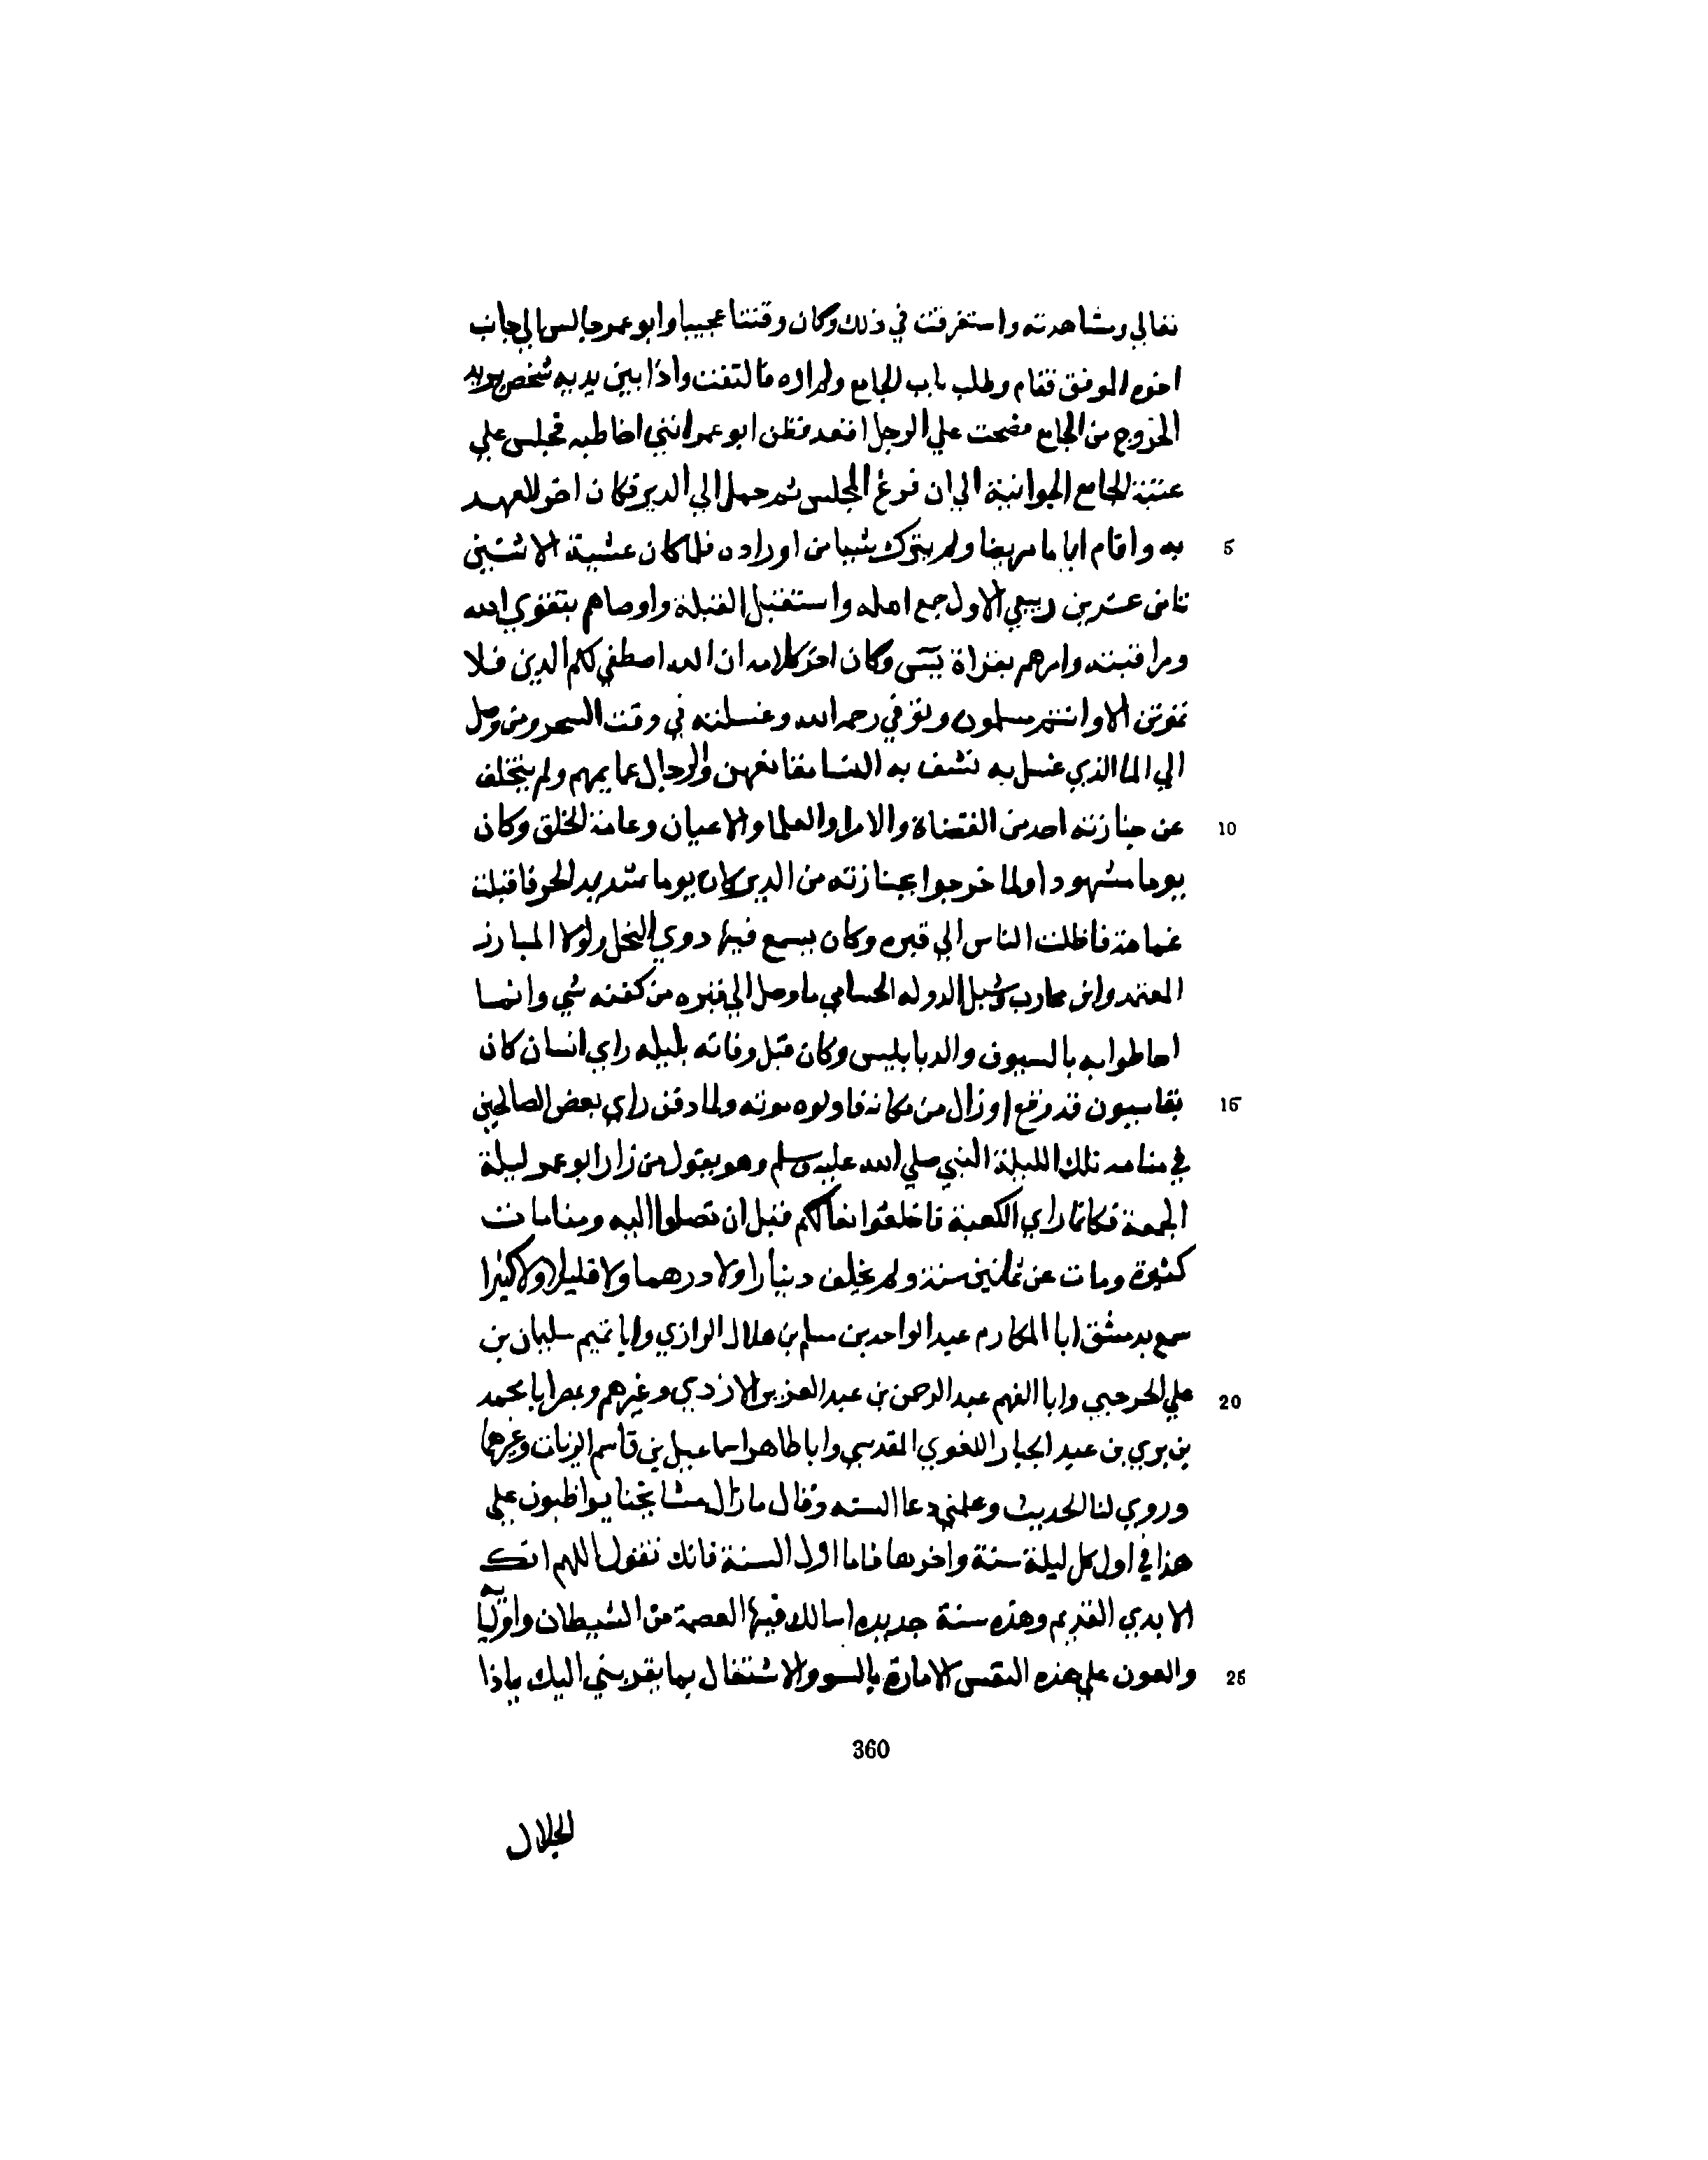 تعالي ومشاهدته واستغرقت في ذلك وكان وقتنا عجيبا وابو عمر جالس الي جانب
اخيه الموفق فقام وطلب باب الجامع ولم اره فالتفت واذا بين يديه شخص يريد
الخروج من الجامع فصحت علي الرجل اقعد فظن ابو عمر انني اخاطبه فجلس علي
عتبة الجامع الجوانية الي ان فرغ المجلس ثم حمل الي الدير فكان اخر العهد
5 به واقام اياما مريضا ولم يترك شييا من اوراده فلما كان عشية الاثنين
ثامن عشرين ربيع الاول جمع اهله واستقبل القبلة واوصاهم بتقوي الله
ومراقبته وامرهم بقراة يس وكان اخر كلامه ان الله اصطفي لكم الدين فلا
تموتن الا وانتم مسلمون وتوفي رحمه الله وغسلته في وقت السحر ومن وصل
الي الما الذي غسل به نشف به النسا مقانعهن والرجال عمايمهم ولم يتخلف
10 عن جنازته احد من القضاة والامرا والعلما والاعيان وعامة الخلق وكان
يوما مشهودا ولما خرجوا بجنازته من الدير كان يوما شديد الحر فاقبلت
غمامة فاظلت الناس الي قبره وكان يسمع فيها دوي النحل ولولا المبارز
المعتمد وابن محارب وشبل الدوله الحسامي ما وصل الي قبره من كفنه شي وانما
احاطوا به بالسيوف والدبابيس وكان قبل وفاته بليله راي انسان كان
15 بقاسيون قد وقع او زال من مكانه فاولوه موته ولما دفن راي بعض الصالحين
في منامه تلك الليلة النبي صلي الله عليه وسلم وهو يقول من زار ابو عمر ليلة
الجمعة فكانما راي الكعبة فاخلعوا نعالكم قبل ان تصلوا اليه ومنامات
كثيرة ومات عن ثمانين سنة ولم يخلف دينارا ولا درهما ولا قليلا ولا كثيرا
سمع بدمشق ابا المكارم عبد الواحد بن مسلم بن هلال الوازي وابا تميم سليمان بن
20 علي الحرحبي وابا الفهم عبد الرحمن بن عبد العزيز الازدي وغيرهم وبمصر ابا محمد
بن بري بن عبد الجبار اللغوي المقدسي وابا طاهر اسماعيل بن قاسم الزيات وغيرهما
وروي لنا الحديث وعلمني دعا السنه وقال ما زال مشايخنا يواظبون علي
هذا في اول كل ليلة سنة واخرها فاما اول السنة فانك تقول اللهم انت
الابدي القديم وهذه سنة جديده اسالك فيها العصمة من الشيطان واوليايه
25 والعون علي هذه النفس الامارة بالسو والاشتغال بما يقربني اليك ياذا
360
الجلال